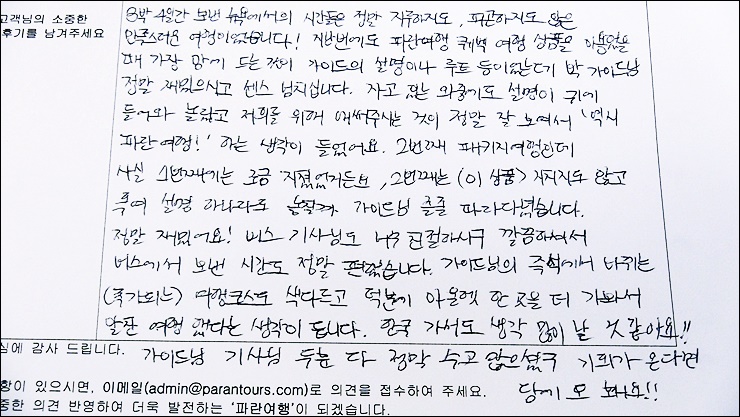 고객님의 소중한
후기를 남겨주세요
3박 4일간 보낸 뉴욕에서의 시간들은 정말 지루하지도, 피곤하지도 않은
만족스러운 여행이었습니다! 지난번에도 파란여행 퀘벡 여행 상품을 이용했을
때 가장 맘에 드는 것이 가이드의 설명이나 루트 등이었는데 박 가이드님
정말 재밌으시고 센스 넘치십니다. 자고 있는 와중에도 설명이 귀에
들어와 놀랐고 저희를 위해 애써주시는 것이 정말 잘 보여서 '역시
파란여행!' 하는 생각이 들었어요. 2번째 패키지여행인데
사실 1번째에는 조금 지쳤었거든요, 2번째는 (이 상품) 지치지도 않고
혹여 설명 하나라도 놓칠까 가이드님 졸졸 따라다녔습니다.
정말 재밌어요! 버스 기사님도 너무 친절하시구 깔끔하셔서
버스에서 보낸 시간도 정말 편했습니다. 가이드님의 즉석에서 바뀌는
(추가되는) 여행코스도 색다르고 덕분에 아울렛 한 곳을 더 가봐서
알찬 여행 했다는 생각이 듭니다. 한국 가서도 생각 많이 날 것 같아요!!
심에 감사 드립니다. 가이드님 기사님 두분 다 정말 수고 많으셨구 기회가 온다면
항이 있으시면, 이메일(admin@parantours.com)로 의견을 접수하여 주세요. 당케 모 봐요!!
중한 의견 반영하여 더욱 발전하는 '파란여행'이 되겠습니다.